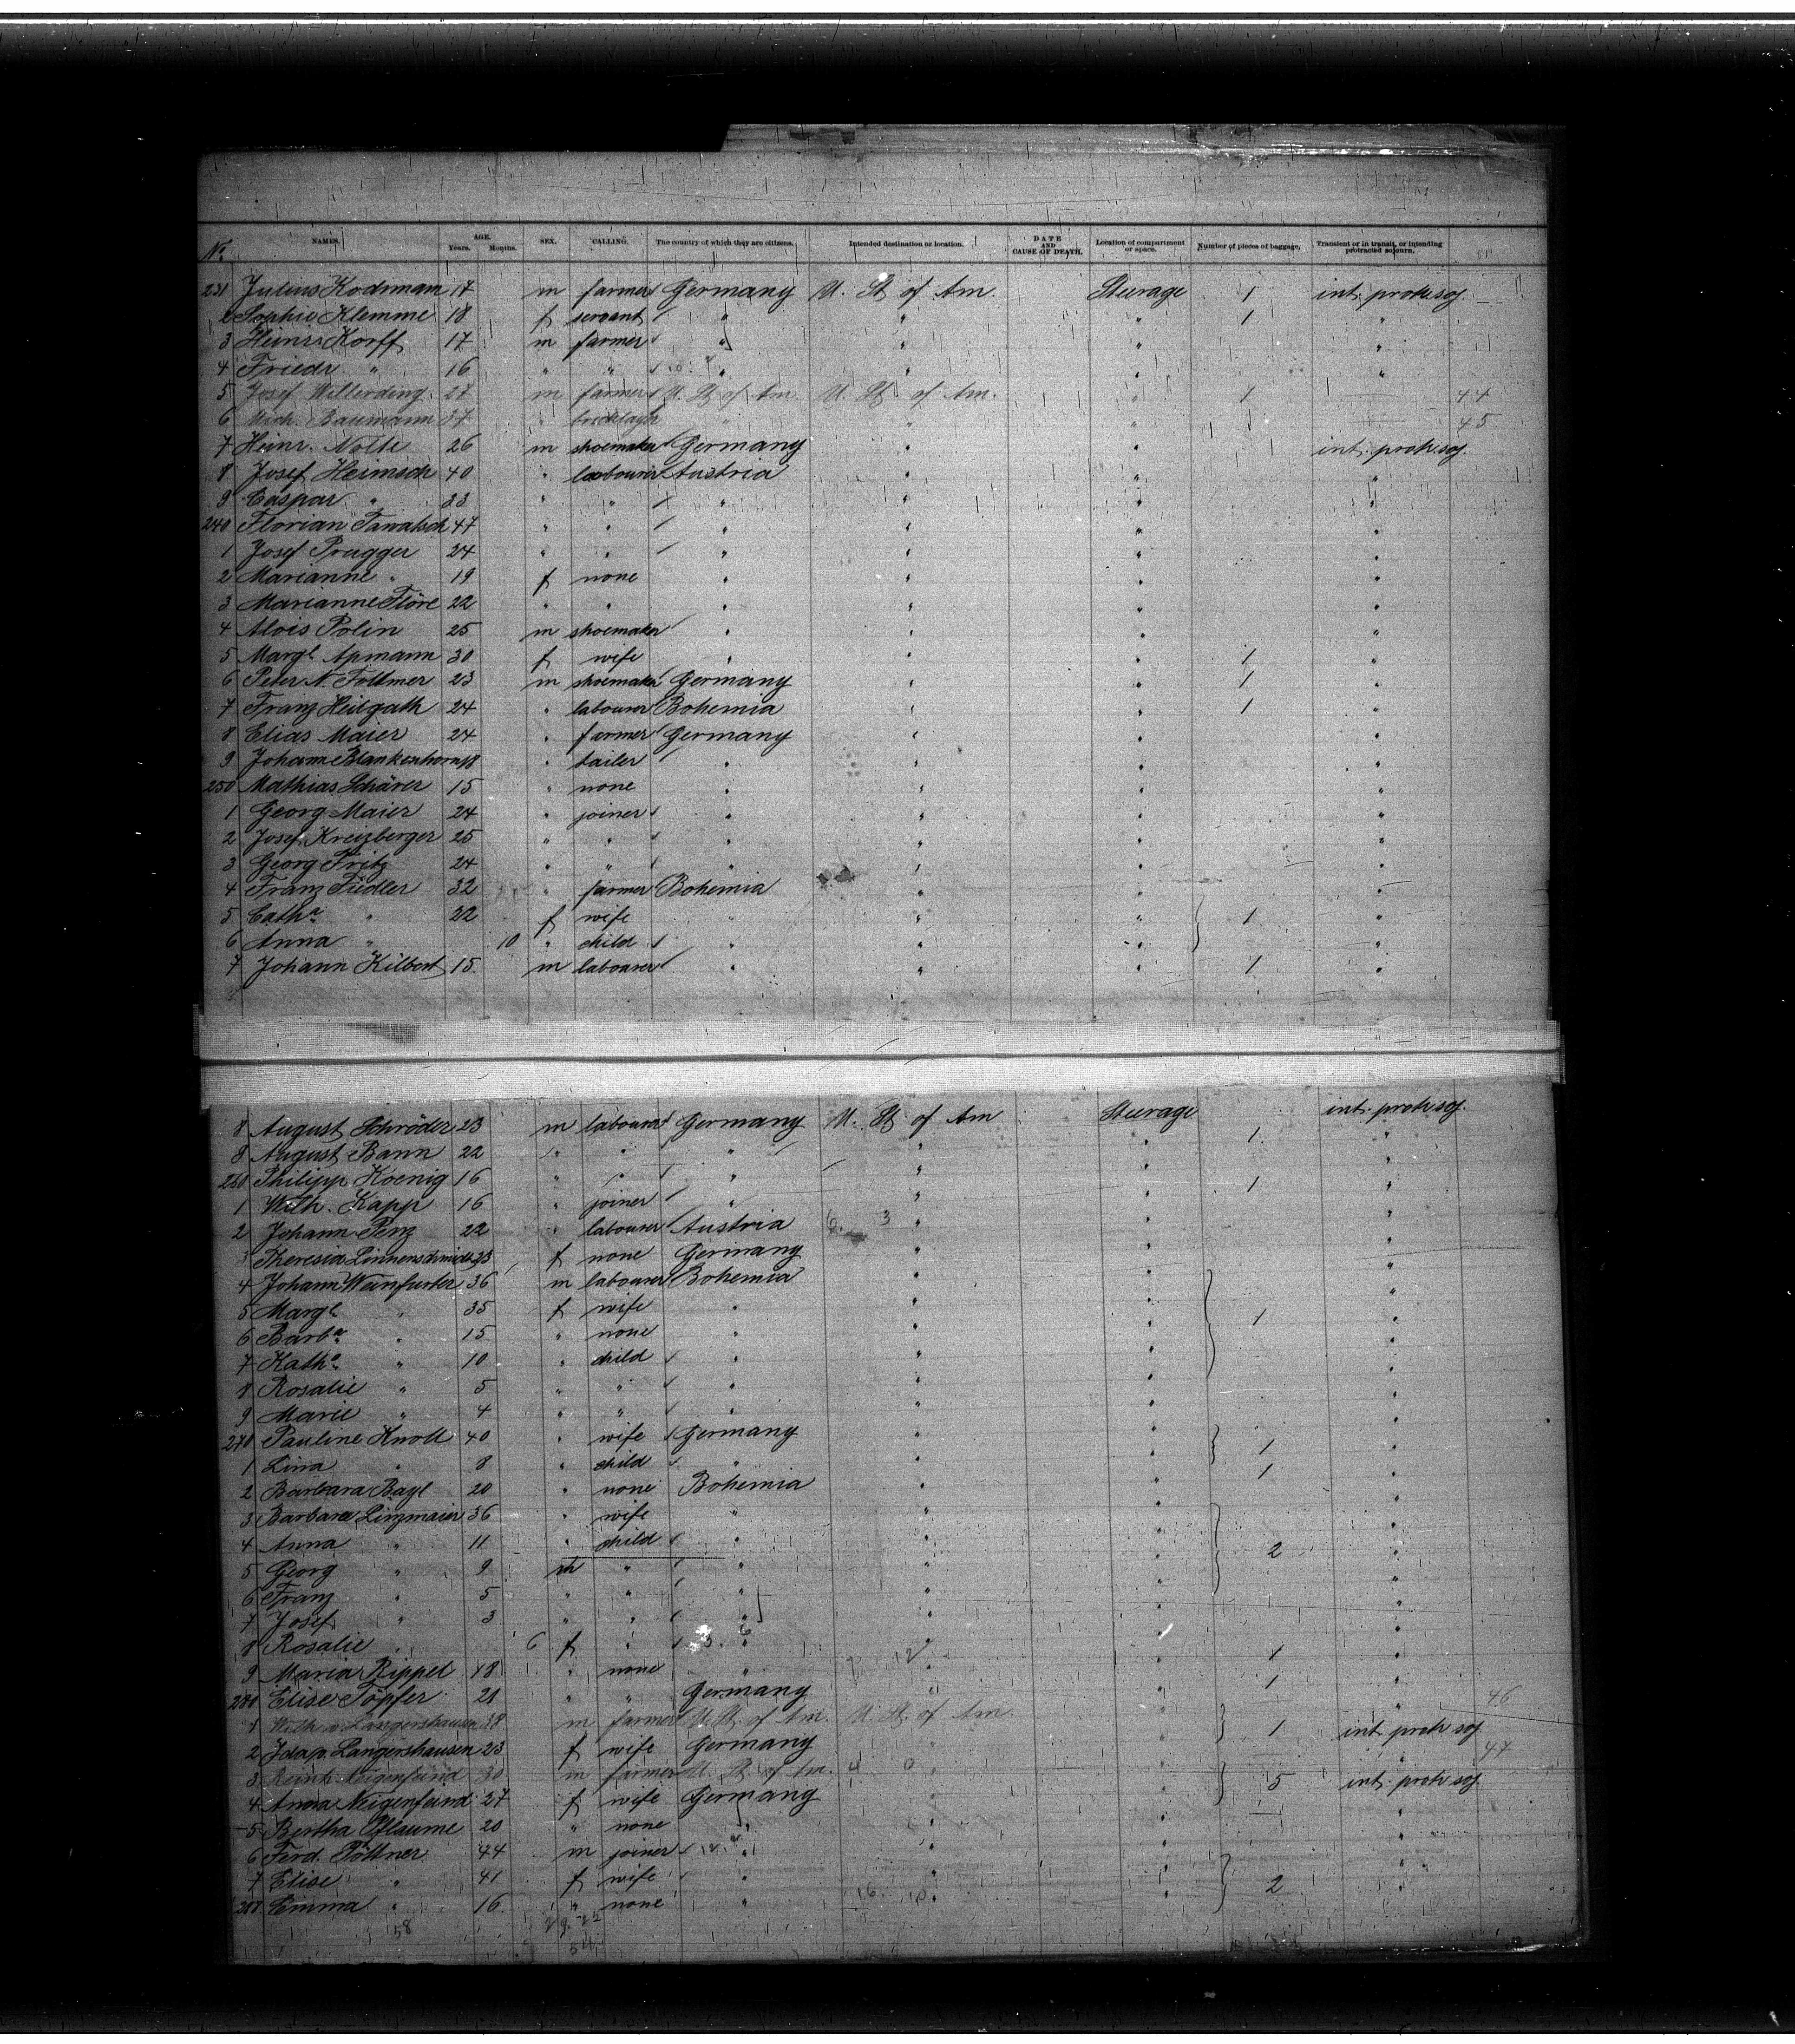 No. NAMES. AGE. Years. Months. SEX. CALLING. The country of which they are citizens. Intended destination or location. DATE AND CAUSE OF DEATH. Location of compartment or space. Number of pieces of baggage. Transient or in transit, or intending protracted sojourn.
231 Julius 17 m farmer Germany U. St of Am. Steerage 1 int. protr. soj.
2 Sophie Klemme 18 f servant " " " 1 "
3 Heinr. Korff 17 m farmer " " " "
4 Friedr " 16 " " " " " "
5 Josef Willerding 27 m farmer U. St of Am. U. St of Am. " 1 44
6 Mich. Baumann 37 " bricklayer " " " 1 45
7 Heinr. Nolte 26 m shoemaker Germany " " int. protr. soj.
8 Josef Heimsch 40 " labourer Austria " " "
9 Caspar " 33 " " " " " "
240 Florian 47 " " " " " "
1 Josef Prugger 24 " " " " " "
2 Marianne " 19 f none " " " "
3 Marianne Flöre 22 " " " " " "
4 Alois Polin 25 m shoemaker " " " "
5 Margt Apmann 30 f wife " " " 1 "
6 Peter N. Follmer 23 m shoemaker Germany " " 1 "
7 Franz Heisgath 24 " labourer Bohemia " " 1 "
8 Elias Maier 24 " farmer Germany " " "
9 Johann Blankenhorn 18 " tailer " " " "
250 Mathias Schärer 15 " none " " " "
1 Georg Maier 24 " joiner " " " "
2 Josef Kreizberger 25 " " " " " "
3 Georg Fritz 24 " " " " " "
4 Franz Fiedler 32 " farmer Bohemia " " "
5 Catha " 22 f wife " " " 1 "
6 Anna " 10 " child " " " "
7 Johann Kilbert 15 m labourer " " " 1 "
8 August Schröder 23 m labourer Germany U. St of Am Steerage 1 int. protr. soj.
9 August Bann 22 " " " " " "
260 Philipp Koenig 16 " " " " " 1 "
1 Wilh. Kapp 16 " joiner " " " "
2 Johann Penz 22 " labourer Austria " " "
3 Theresia Linnenschmidt 23 f none Germany " " "
4 Johann Weinfurter 36 m labourer Bohemia " " "
5 Margt " 35 f wife " " " 1 "
6 Barba " 15 " none " " " "
7 Katha " 10 " child " " " "
8 Rosalie " 5 " " " " " "
9 Marie " 4 " " " " " "
270 Pauline Knoll 40 " wife Germany " " 1 "
1 Lina " 8 " child " " " "
2 Barbara Bayl 20 " none Bohemia " " 1 "
3 Barbara Linzmaier 36 " wife " " " "
4 Anna " 11 " child " " " 2 "
5 Georg " 9 m " " " " "
6 Franz " 5 " " " " " "
7 Josef " 3 " " " " " "
8 Rosalie " 6 f " " " " "
9 Maria Rippel 18 " none " " " 1 "
280 Elise Töpfer 21 " " Germany " " 1 "
1 Wilh. v. Langershausen 38 m farmer U. St. of Am. U. St. of Am " 1 46
2 Ida v. Langershausen 23 f wife Germany " " int. protr. soj.
3 Reinh. Neigenfind 30 m farmer U. St. of Am. " " 5 47
4 Anna Neigenfind 27 f wife Germany " " int. protr. soj.
5 Bertha Pflaume 20 " none " " " "
6 Ferd. Pöttner 44 m joiner " " " "
7 Elise " 41 f wife " " " 2 "
288 Emma " 16 " none " " " "
58
54